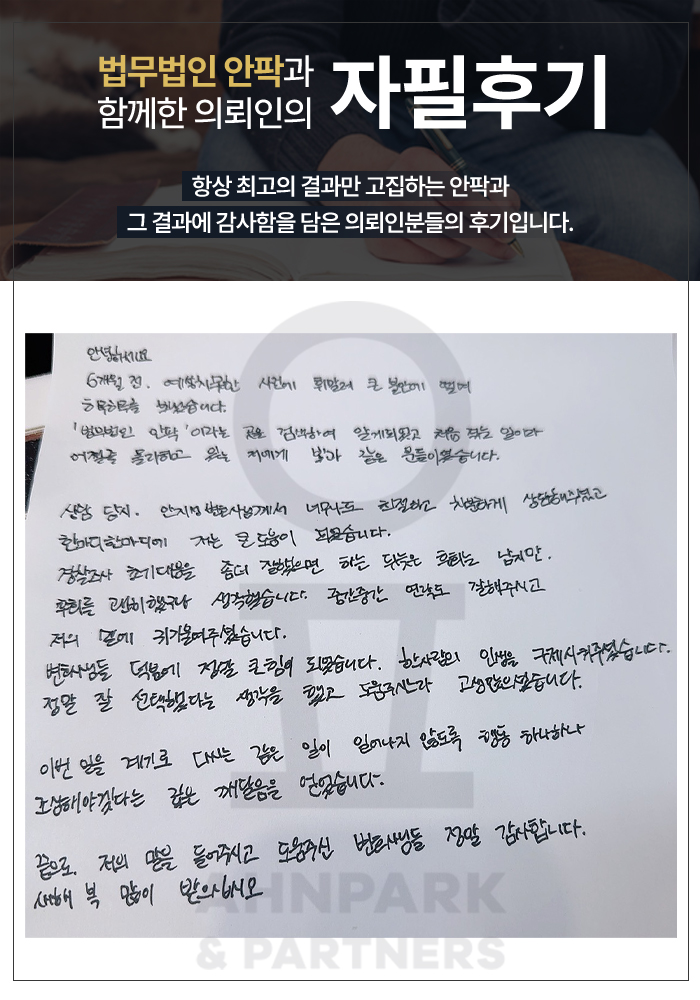 법무법인 안팍과
함께한 의뢰인의
자필후기
항상 최고의 결과만 고집하는 안팍과
그 결과에 감사함을 담은 의뢰인분들의 후기입니다.
안녕하세요
6개월 전. 예상치못한 사건에 휘말려 큰 불안에 떨며
하루하루를 보냈습니다.
'법무법인 안팍'이라는 곳을 검색하여 알게되었고 처음 겪는 일이라
어쩔줄 몰라하고 있는 저에게 빛과 같은 분들이었습니다.
상담 당시. 안지성 변호사님께서 너무나도 친절하고 차분하게 상담해주셨고
한마디한마디에 저는 큰 도움이 되었습니다.
경찰조사 초기대응을 좀더 잘했으면 하는 뒤늦은 후회는 남지만.
후회를 괜히했구나 생각했습니다. 중간중간 연락도 잘해주시고
저의 말에 귀기울여주셨습니다.
변호사님들 덕분에 정말 큰힘이 되었습니다. 한사람의 인생을 구제시켜주셨습니다.
정말 잘 선택했다는 생각을 했고 도움주시느라 고생많으셨습니다.
이번 일을 계기로 다시는 같은 일이 일어나지 않도록 행동 하나하나
조심해야겠다는 깊은 깨달음을 얻었습니다.
끝으로. 저의 말을 들어주시고 도움주신 변호사님들 정말 감사합니다.
새해 복 많이 받으십시오
AHNPARK
& PARTNERS